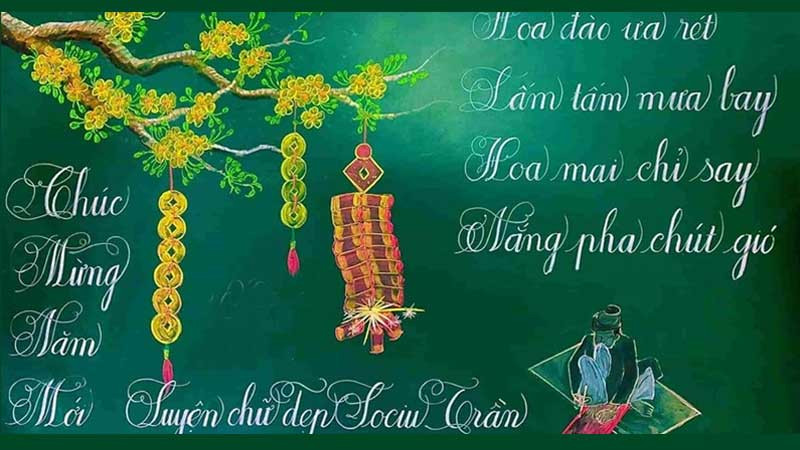 Hoa đào ưa rét
Lấm tấm mưa bay
Hoa mai chỉ say
Nắng pha chút gió
Chúc
Mừng
Năm
Mới
Luyện chữ đẹp Trần